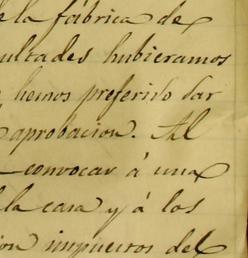 de la fábrica de
ultades hubieramos
hemos preferido dar
aprobacion. Al
convocar á una
la casa y á los
ion impuestos del